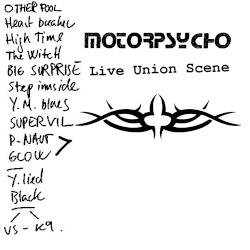 OTHER FOOL
Heart breaker
High Time
The Witch
BIG SURPRISE
Step inside
Y.M. blues
SUPERVIL
P-NAUT
GLOW
Y. lied
Black
VS - K9.
MOTORPSYCHO
Live Union Scene